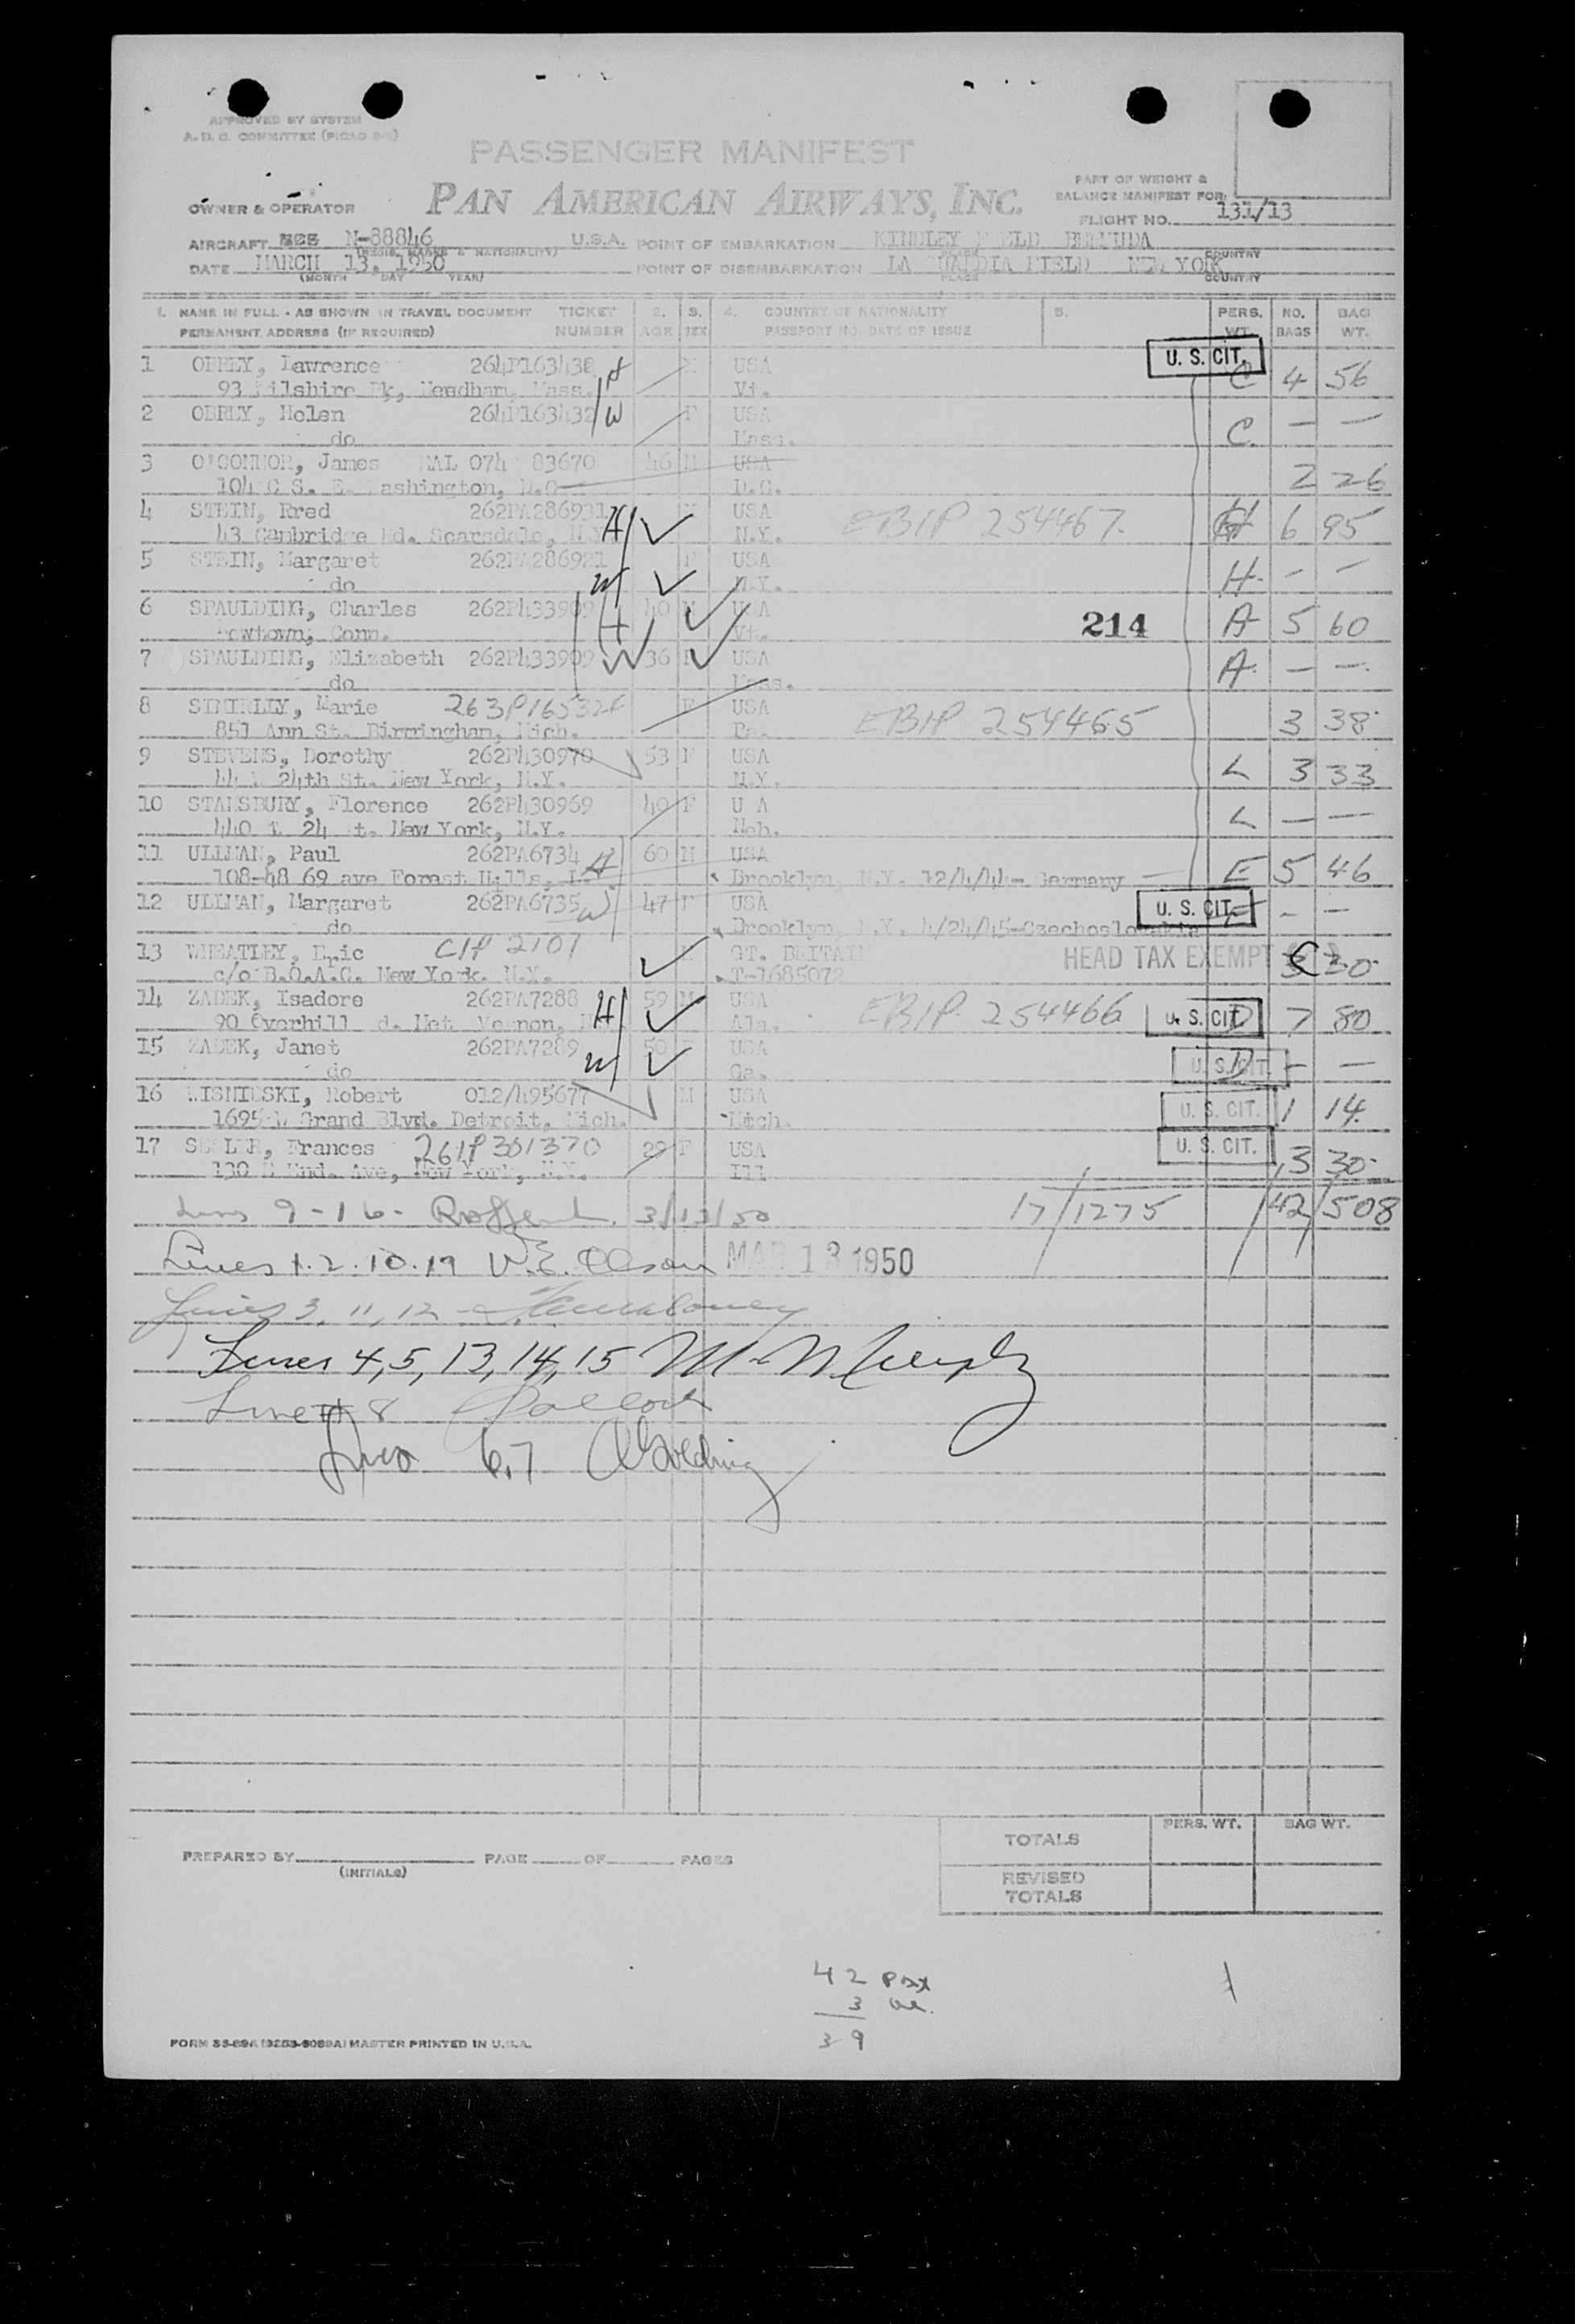 APPROVED BY SYSTEM
A.D.C. COMMITTEE
PASSENGER MANIFEST
PAN AMERICAN AIRWAYS, INC.
OWNER & OPERATOR
PART OF WEIGHT &
BALANCE MANIFEST FOR
FLIGHT NO. 131/13
AIRCRAFT N-88846 U.S.A. POINT OF EMBARKATION KINDLEY FIELD BERMUDA
DATE MARCH 13, 1950 POINT OF DISEMBARKATION LA GUARDIA FIELD NEW YORK COUNTRY
(MONTH DAY YEAR) PLACE COUNTRY
1. NAME IN FULL - AS SHOWN IN TRAVEL DOCUMENT TICKET 2. 3. 4. COUNTRY OF NATIONALITY 5. PERS. NO. BAG
PERMANENT ADDRESS (IF REQUIRED) NUMBER AGE SEX PASSPORT NO. DATE OF ISSUE WT. BAGS WT.
1 Lawrence 264P163438 H M USA U. S. CIT. C 4 56
Needham, Mass. Vt.
2 Helen 264P163432 W F USA
do Mass. C. — —
3 O'CONNOR, James 074 83670 46 M USA
104 C S. E. Washington, D.C. D.C. 2 26
4 STEIN, Fred 262PA286931 H M USA EBIP 254467. H 6 95
43 Cambridge Rd. Scarsdale, N.Y. N.Y.
5 STEIN, Margaret 262PA286921 F USA
do W N.Y. H. — —
6 SPAULDING, Charles 262P433909 40 M USA 214 A 5 60
Newtown, Conn. H Vt.
7 SPAULDING, Elizabeth 262P433909 W 36 F USA A. — —
do Mass.
8 Marie F USA EBIP 254465 3 38
851 Ann St. Birmingham, Mich. Pa.
9 STEVENS, Dorothy 262P430970 53 F USA L 3 33
24th St. New York, N.Y. N.Y.
10 STANSBURY, Florence 262P430969 49 F U A L — —
440 24 New York, N.Y. Neb.
11 ULLMAN, Paul 262PA6734 H 60 M USA E 5 46
108-48 69 ave Forest Hills, Brooklyn, N.Y. 12/4/44- Germany
12 ULLMAN, Margaret 262PA6735 W 47 F USA U. S. CIT. — —
do Brooklyn, N.Y. 4/24/45-Czechoslovakia
13 WHEATLEY, Eric C/P 2101 GT. BRITAIN HEAD TAX EXEMPT 3 30
c/o B.O.A.C. New York. N.Y. T-1685072
14 ZADEK, Isadore 262PA7288 H 59 M USA EBIP. 254466 U. S. CIT. D 7 80
90 Overhill Mt Vernon, Ala.
15 ZADEK, Janet 262PA7289 W 50 F USA U. S. CIT. D — —
do Ga.
16 WISNIESKI, Robert 012/495677 M USA U. S. CIT. 1 14
1695 W Grand Blvd. Detroit, Mich. Mich.
17 Frances 261P351370 29 F USA U. S. CIT. 3 30
130 End. Ave, New York, N.Y. Ill
Lines 9-16- 3/13/50 17/1275 42/508
Lines 1.2.10.17 V.E. Olson MAR 13 1950
Lines 3, 11, 12
Lines 4,5,13,14,15 M Murphy
Line # 8 Pollock
Lines 6,7 Golding
TOTALS PERS. WT. BAG WT.
PREPARED BY PAGE OF PAGES
(INITIALS)
REVISED
TOTALS
42 pax
3
39
MASTER PRINTED IN U.S.A.